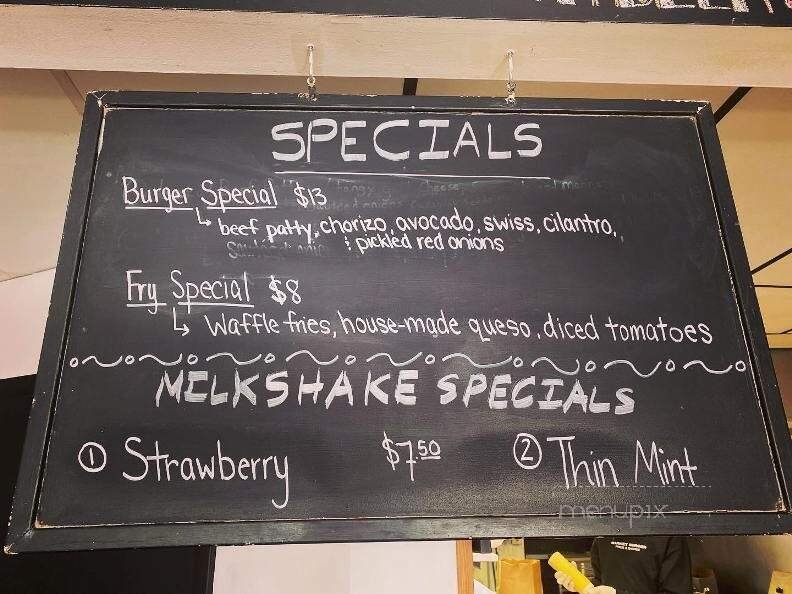 SPECIALS
Burger Special $13
beef patty, chorizo, avocado, swiss, cilantro,
& pickled red onions
Fry Special $8
Waffle fries, house-made queso, diced tomatoes
MILKSHAKE SPECIALS
① Strawberry $7.50 ② Thin Mint
menupix